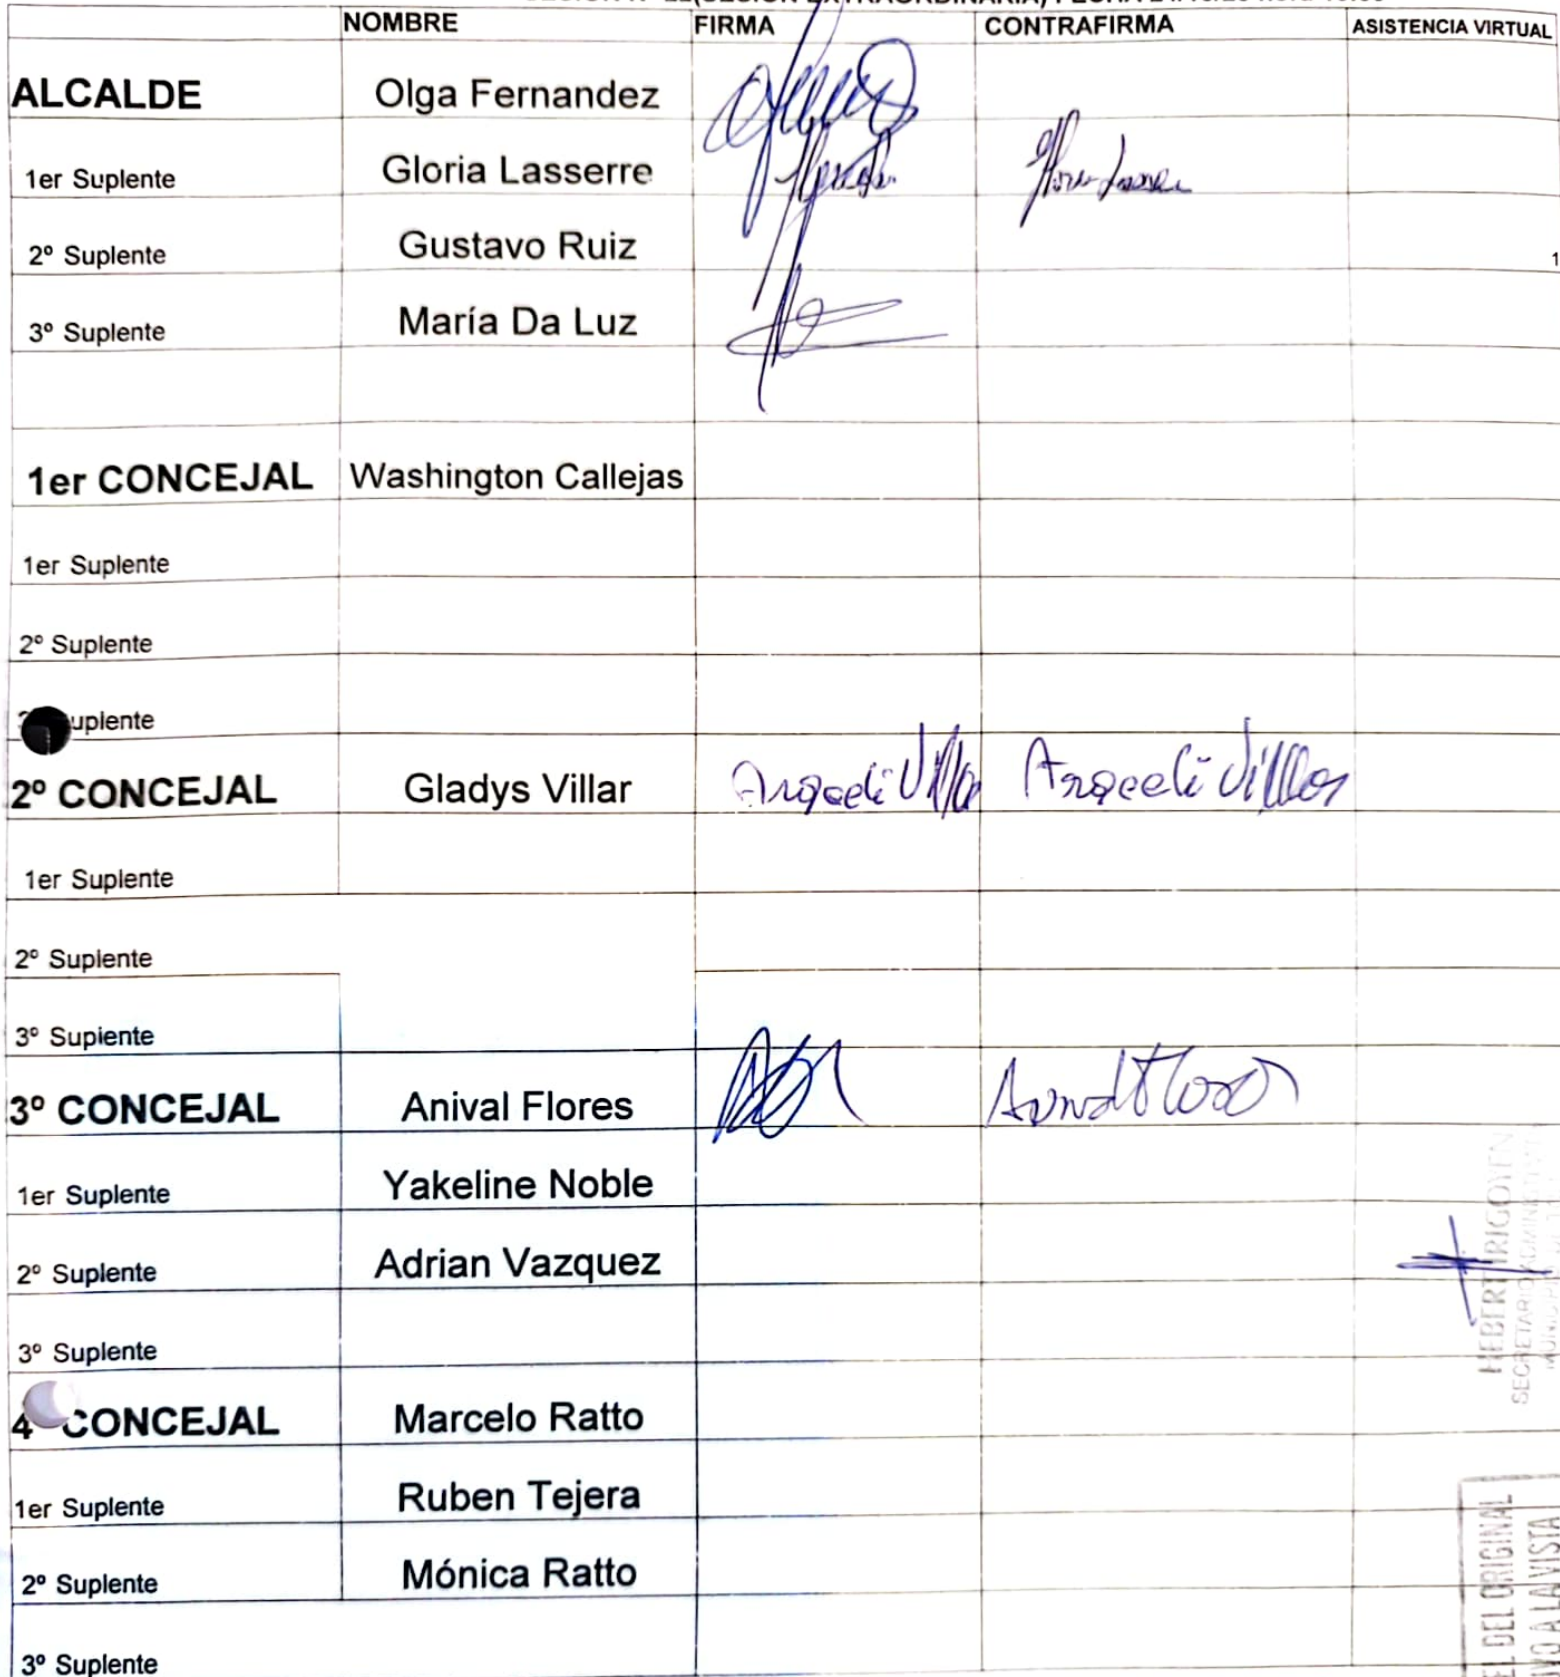 NOMBRE FIRMA CONTRAFIRMA ASISTENCIA VIRTUAL
ALCALDE Olga Fernandez
1er Suplente Gloria Lasserre
2º Suplente Gustavo Ruiz 1
3º Suplente María Da Luz
1er CONCEJAL Washington Callejas
1er Suplente
2º Suplente
uplente
2º CONCEJAL Gladys Villar Araceli Villar Araceli Villar
1er Suplente
2º Suplente
3º Suplente
3º CONCEJAL Anival Flores
1er Suplente Yakeline Noble
2º Suplente Adrian Vazquez
3º Suplente
4º CONCEJAL Marcelo Ratto
1er Suplente Ruben Tejera
2º Suplente Mónica Ratto
3º Suplente
HEBERT IRIGOYEN
DEL ORIGINAL
A LA VISTA